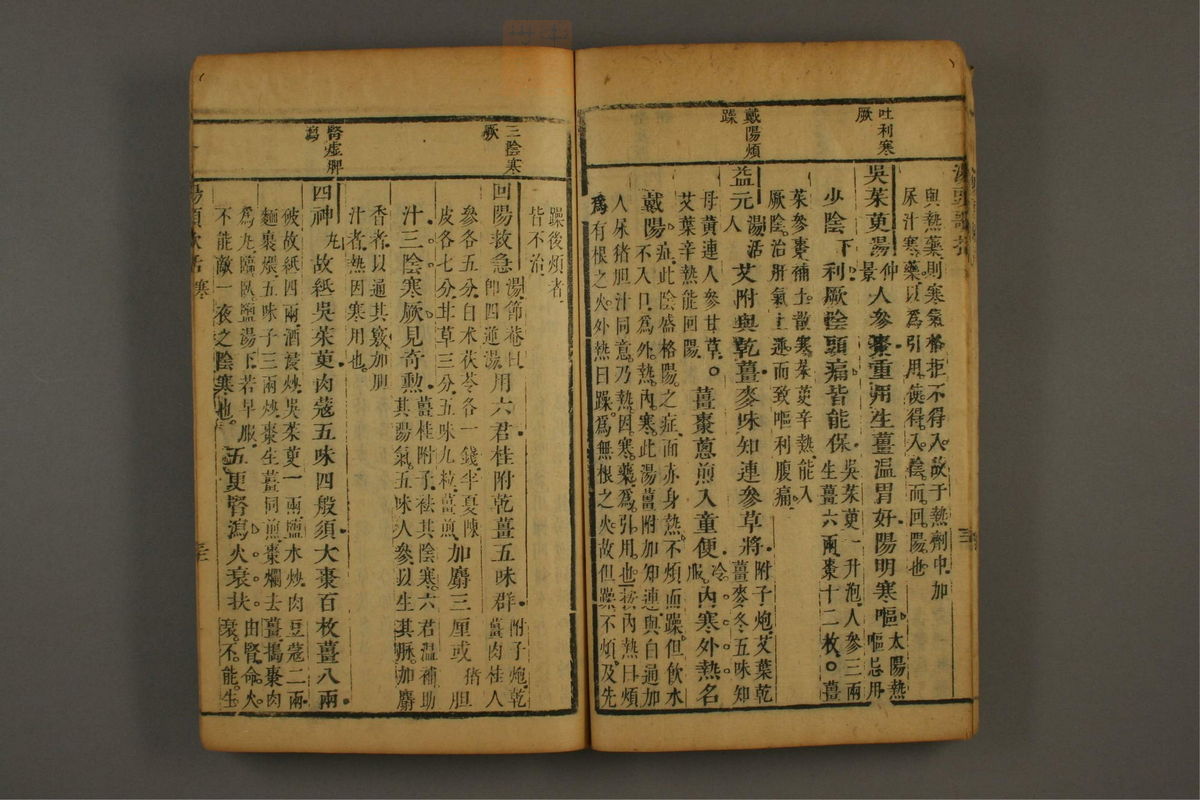 湯頭歌括
與熱藥則寒氣格拒不得入故于熱劑中加
尿汁寒藥以為引用使得入陰而回陽也
吐利寒厥
吳茱萸湯仲景人參棗重用生薑溫胃好陽明寒嘔太陽熱嘔忌用
少陰下利厥陰頭痛皆能保吳茱萸一升泡人參三兩生薑六兩棗十二枚○薑
茱參棗補土散寒茱萸辛熱能入
厥陰治肝氣上逆而致嘔利腹痛
戴陽煩躁
益元湯活人艾附與乾薑麥味知連參草將附子炮艾葉乾薑麥冬五味知
母黃連人參甘草○薑棗蔥煎入童便冷服內寒外熱名
艾葉辛熱能回陽
戴陽症此陰盛格陽之症面赤身熱不煩而躁但飲水
不入口為外熱內寒此湯薑附加知連與白通加
人尿猪胆汁同意乃熱因寒藥為引用也按內熱曰煩
為有根之火外熱曰躁為無根之火故但躁不煩及先
躁後煩者
皆不治
三陰寒厥
回陽救急湯節菴曰即四逆湯用六君桂附乾薑五味群附子炮乾薑肉桂人
參各五分白朮茯苓各一錢半夏陳
皮各七分甘草三分五味九粒薑煎加麝三厘或猪胆
汁三陰寒厥見奇勲薑桂附子祛其陰寒六君溫補助
其陽氣五味人參以生其脈加麝
香者以通其竅加胆
汁者熱因寒用也
腎虛脾瀉
四神丸故紙吳茱萸肉蔻五味四般須大棗百枚薑八兩
破故紙四兩酒浸炒吳茱萸一兩鹽水炒肉豆蔻二兩
麵裹煨五味子三兩炒棗生薑同煎棗爛去薑搗棗肉
為丸臨臥鹽湯下若早服
不能敵一夜之陰寒也五更腎瀉火衰扶由腎命火
衰不能生
湯頭歌括 寒